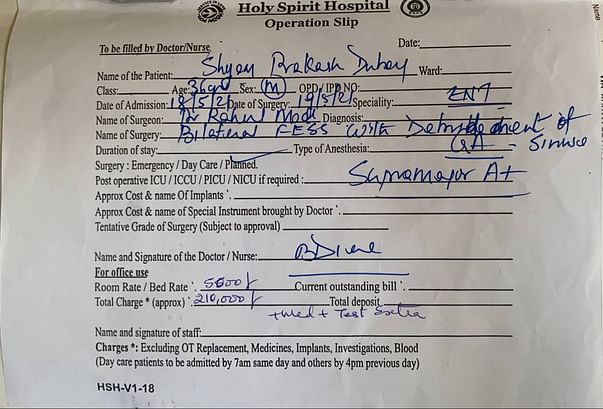 Holy Spirit Hospital
Operation Slip
To be filled by Doctor/Nurse
Date:
Name of the Patient: Shyam Prakash Dubey Ward:
Class: Age: 36 yrs Sex: M OPD/ IPD NO:
Date of Admission: 18/5/21 Date of Surgery: 19/5/21 Speciality: ENT
Name of Surgeon: Dr Rahul Modi Diagnosis:
Name of Surgery: Bilateral FESS with Debridement of
Duration of stay: Type of Anesthesia: GA - Sinuse
Surgery : Emergency / Day Care / Planned.
Post operative ICU / ICCU / PICU / NICU if required : Supramajor A+
Approx Cost & name Of Implants `.
Approx Cost & name of Special Instrument brought by Doctor `.
Tentative Grade of Surgery (Subject to approval)
Name and Signature of the Doctor / Nurse:
For office use
Room Rate / Bed Rate `. 5500/- Current outstanding bill `.
Total Charge * (approx) `. 210,000/- Total deposit
+ Med + Test Extra
Name and signature of staff:
Charges *: Excluding OT Replacement, Medicines, Implants, Investigations, Blood
(Day care patients to be admitted by 7am same day and others by 4pm previous day)
HSH-V1-18
Name